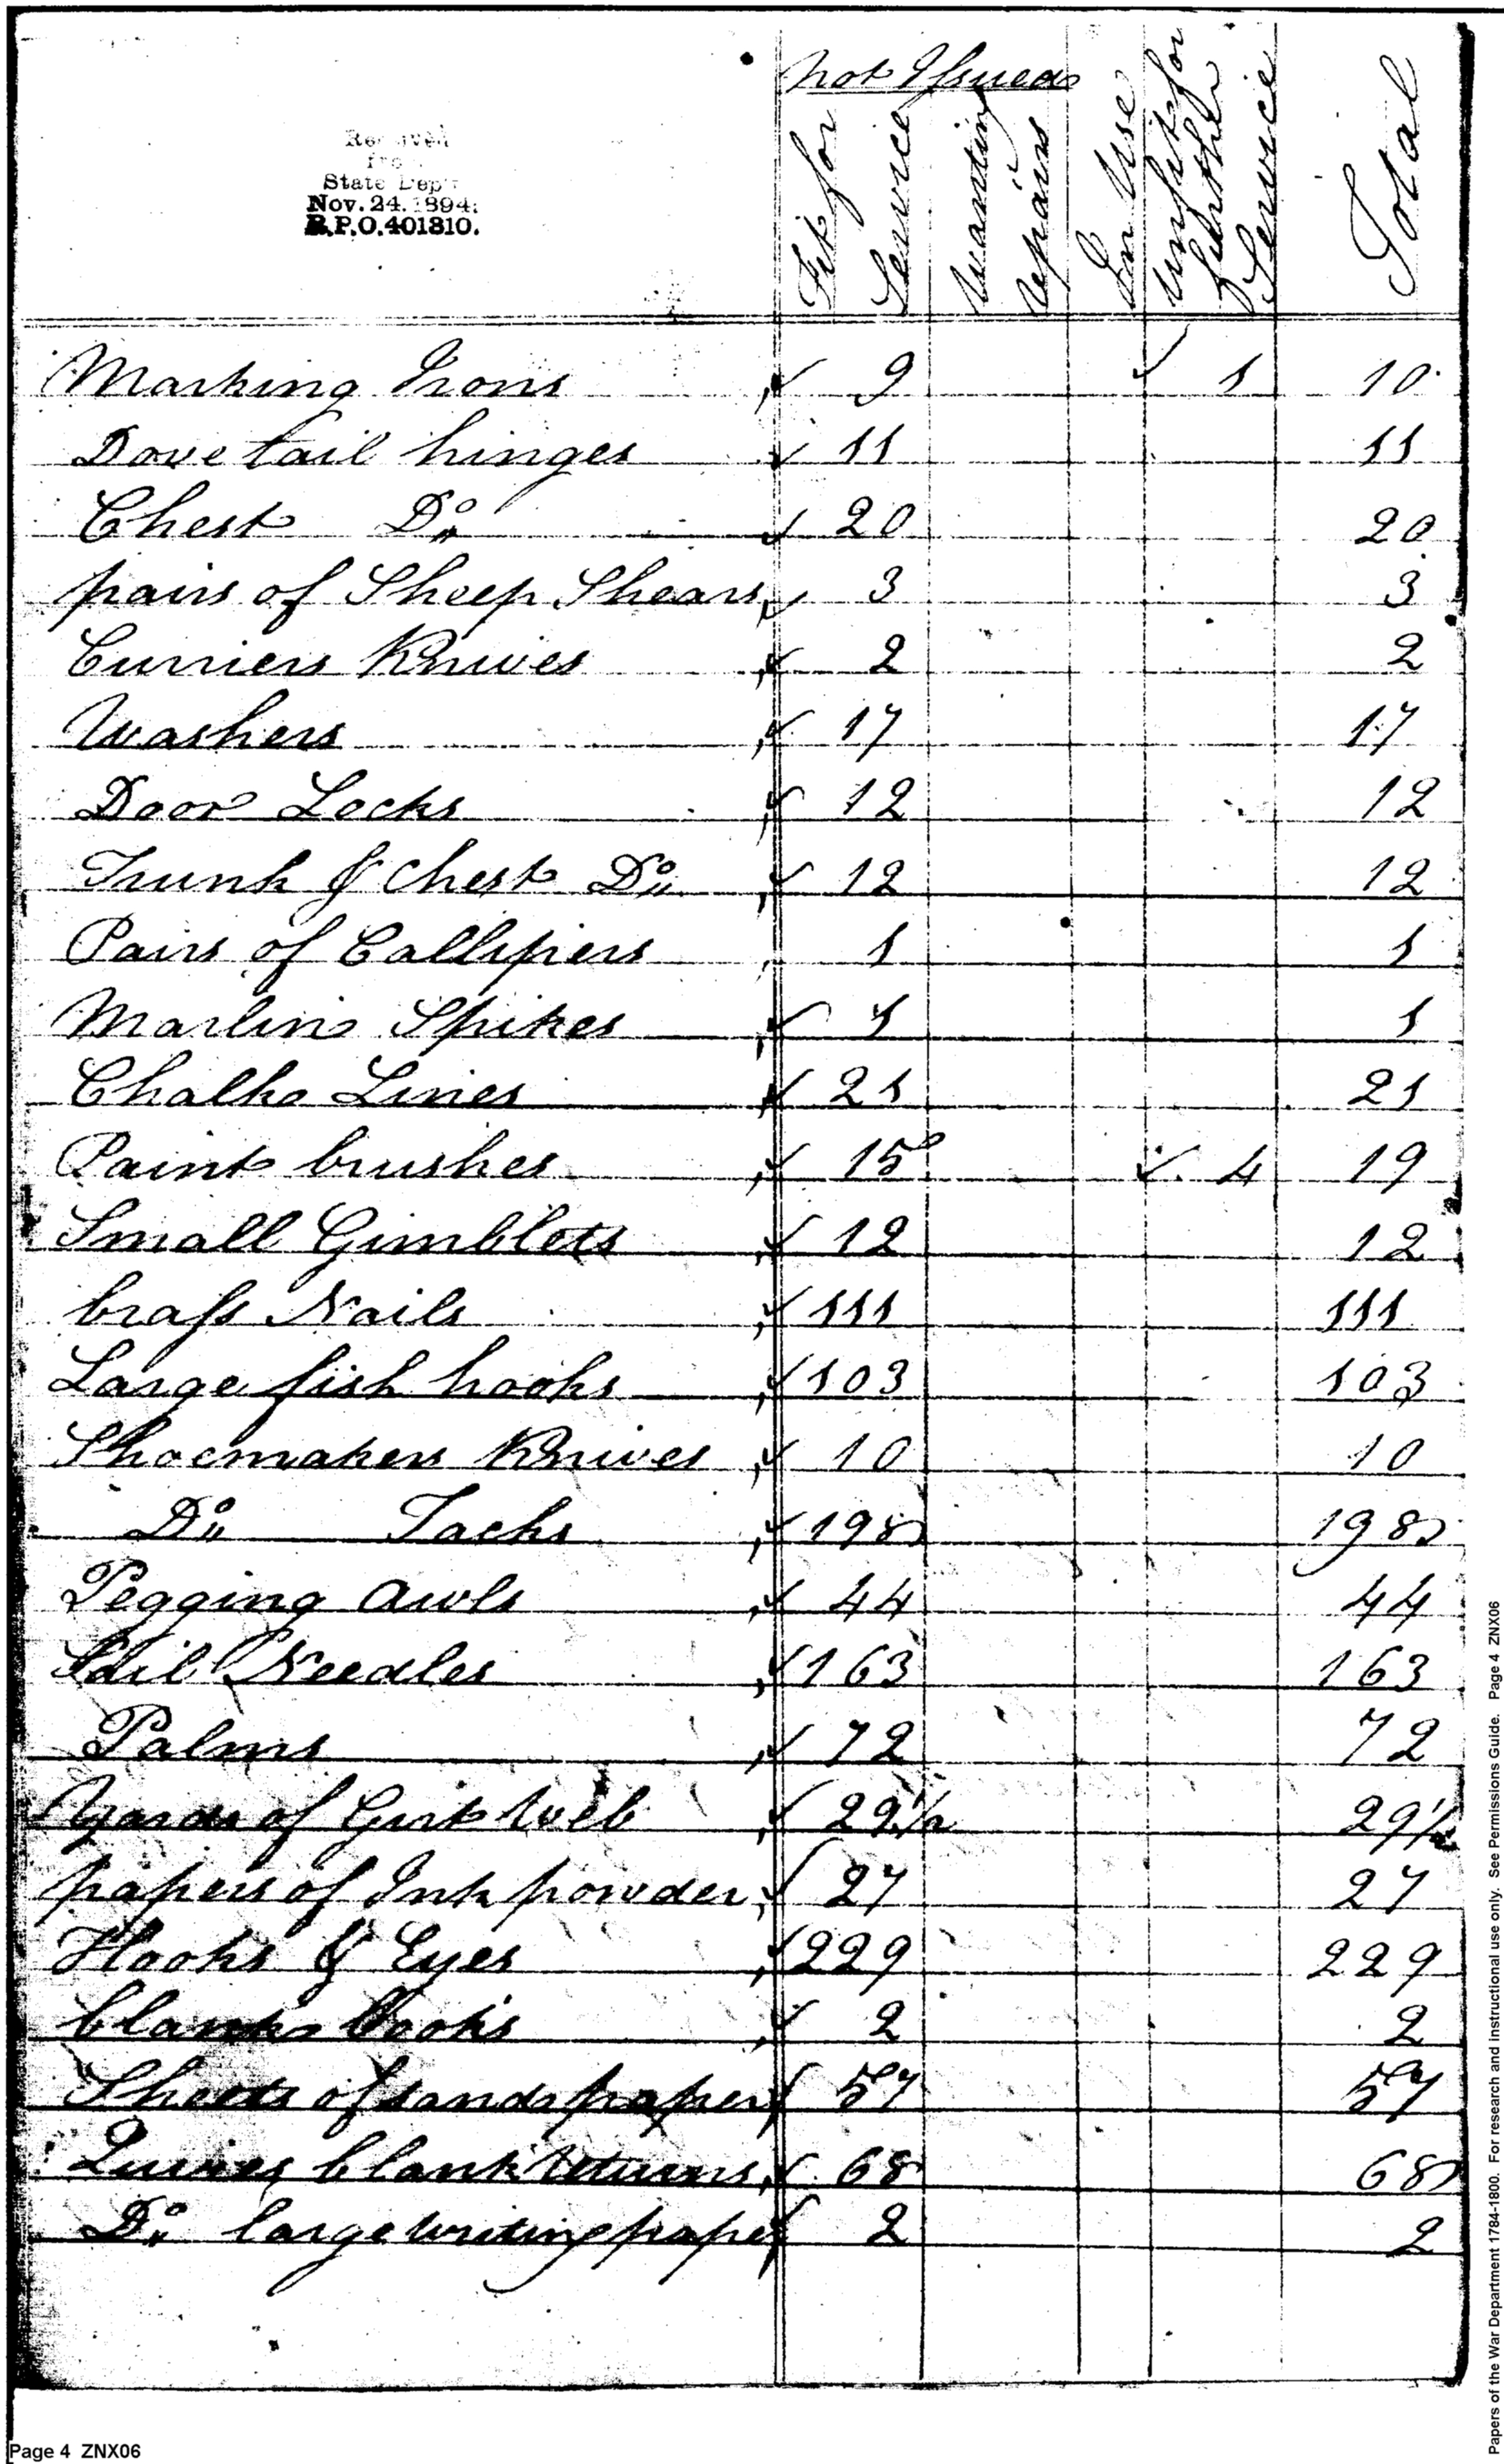 Received
from
State Dep't
Nov. 24. 1894.
R.P.O. 401310.
not Issued
Fit for Service
Wanting repairs
In Use
Unfit for further Service
Total
Marking Irons 9 1 10
Dovetail hinges 11 11
Chest Do 20 20
pairs of Sheep Shears 3 3
Curriers Knives 2 2
Washers 17 17
Door Locks 12 12
Trunk & Chest Do 12 12
Pairs of Callipers 1 1
Marlin Spikes 1 1
Chalk Lines 21 21
Paint brushes 15 4 19
Small Gimblets 12 12
brass Nails 111 111
Large fish hooks 103 103
Shoemakers Knives 10 10
Do Tacks 198 198
Pegging Awls 44 44
Sail Needles 163 163
Palms 72 72
Yards of Girt Web 29 1/2 29 1/2
papers of Ink powder 27 27
Hooks & Eyes 229 229
blank books 2 2
Sheets of sand paper 57 57
Quires blank returns 68 68
Do large writing paper 2 2
Page 4 ZNX06
Papers of the War Department 1784-1800. For research and instructional use only. See Permissions Guide. Page 4 ZNX06